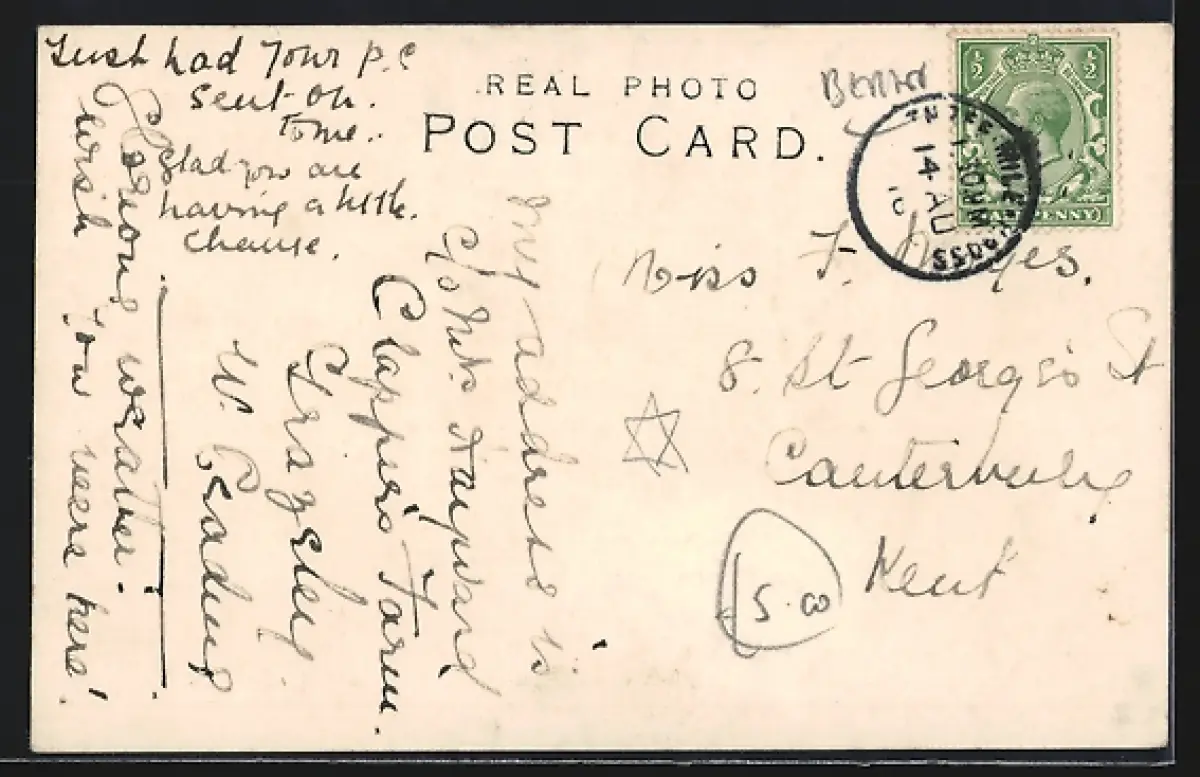 Just had your p.c
sent on.
to me.
Glad you are
having a little.
change.
Glorious weather.
wish you were here!
REAL PHOTO
POST CARD.
½ ½
HALFPENNY
THREE MILE CROSS
14 AU
Miss F.
8. St George's St
Canterbury
Kent
My address is
c/o Mrs
Clappers Farm.
Grazeley
W. Reading